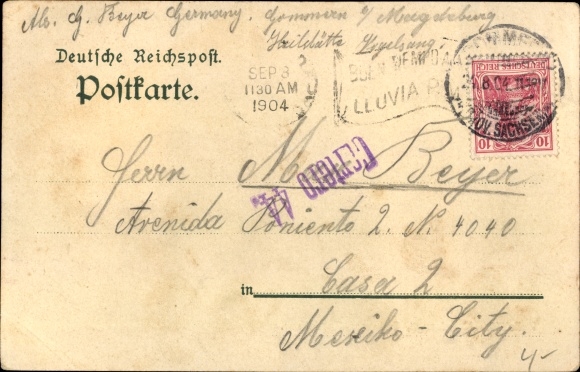 Abs. G. Beyer Germany. Gommern b/ Magdeburg.
Heilstätte Vogelsang
Deutsche Reichspost.
Postkarte.
SEP 8
1130 AM
1904
LLUVIA
8.04
PROV. SACHSEN
DEUTSCHES REICH
10 10
Herrn M. Beyer
Avenida Poniento 2. N. 4040
in Casa 2
Mexiko-City.
4-